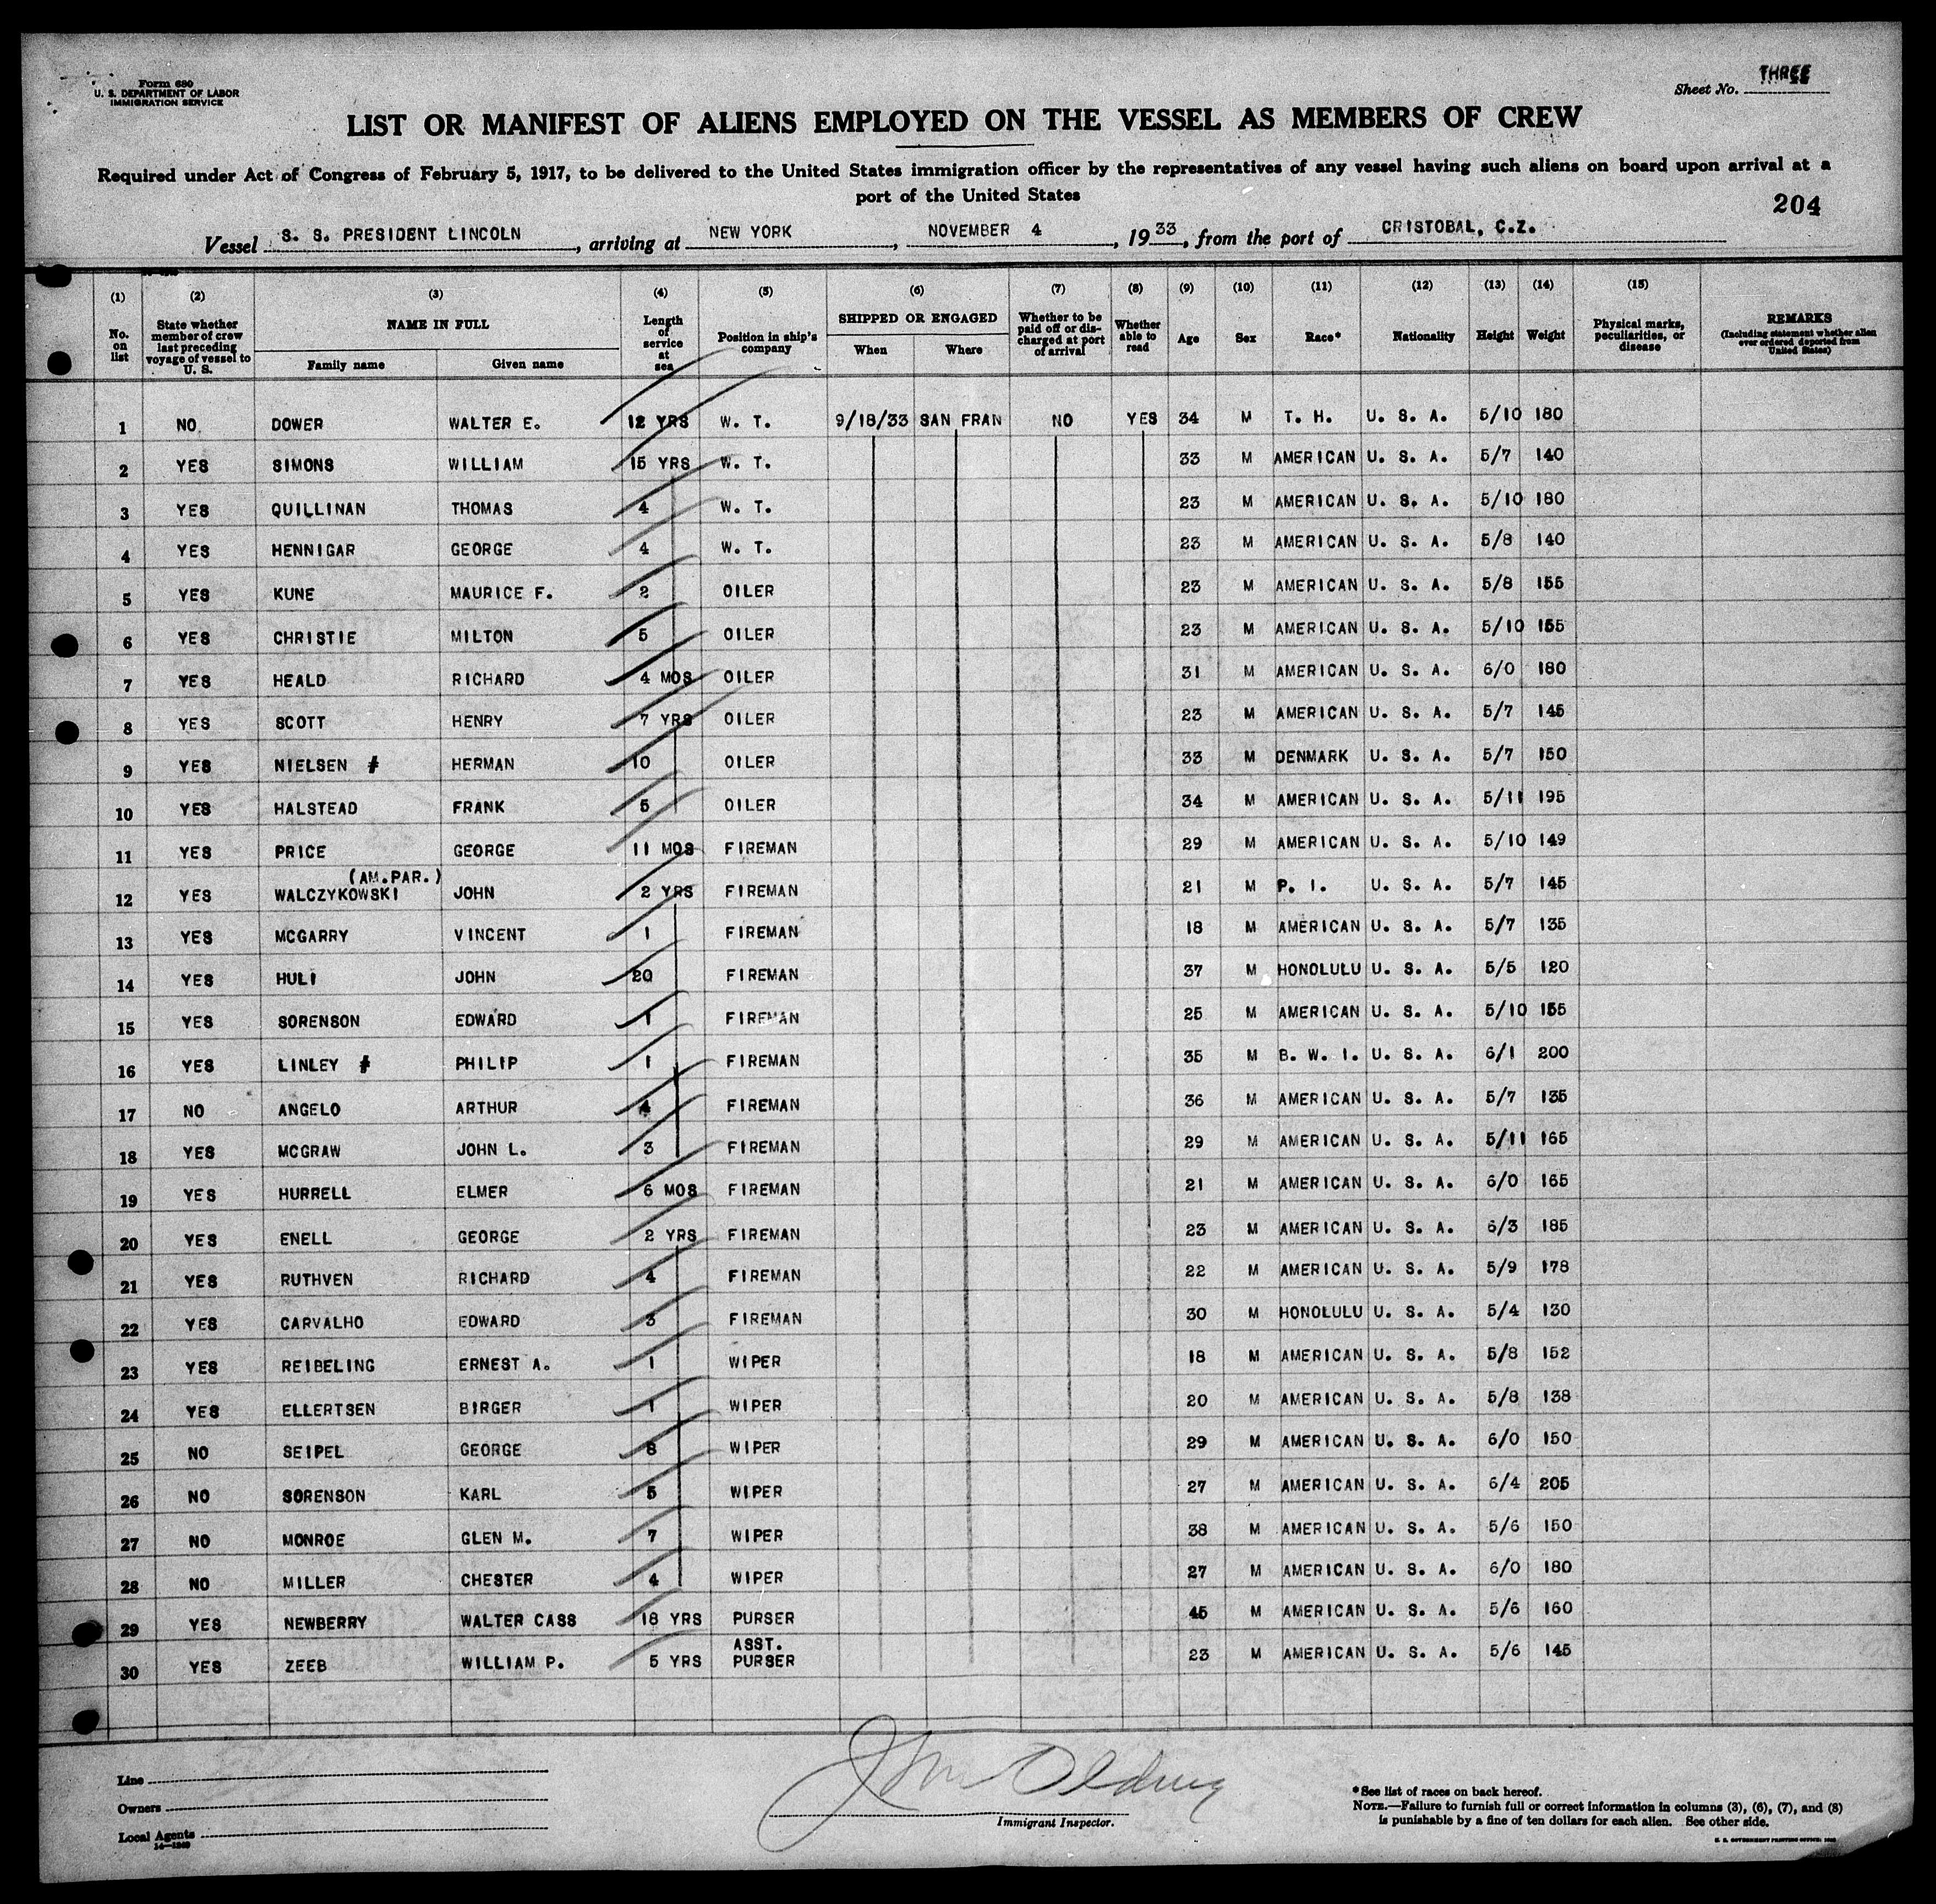 Form 680
U. S. DEPARTMENT OF LABOR
IMMIGRATION SERVICE
Sheet No. THREE
LIST OR MANIFEST OF ALIENS EMPLOYED ON THE VESSEL AS MEMBERS OF CREW
Required under Act of Congress of February 5, 1917, to be delivered to the United States immigration officer by the representatives of any vessel having such aliens on board upon arrival at a
port of the United States
204
Vessel S. S. PRESIDENT LINCOLN, arriving at NEW YORK, NOVEMBER 4, 1933, from the port of CRISTOBAL, C.Z.
(1) (2) (3) (4) (5) (6) (7) (8) (9) (10) (11) (12) (13) (14) (15)
No. on list
State whether member of crew last preceding voyage of vessel to U. S.
NAME IN FULL
Family name
Given name
Length of service at sea
Position in ship's company
SHIPPED OR ENGAGED
When
Where
Whether to be paid off or discharged at port of arrival
Whether able to read
Age
Sex
Race*
Nationality
Height
Weight
Physical marks, peculiarities, or disease
REMARKS
(Including statement whether alien ever ordered deported from United States)
1 NO DOWER WALTER E. 12 YRS W. T. 9/18/33 SAN FRAN NO YES 34 M T. H. U. S. A. 5/10 180
2 YES SIMONS WILLIAM 15 YRS W. T. 33 M AMERICAN U. S. A. 5/7 140
3 YES QUILLINAN THOMAS 4 W. T. 23 M AMERICAN U. S. A. 5/10 180
4 YES HENNIGAR GEORGE 4 W. T. 23 M AMERICAN U. S. A. 5/8 140
5 YES KUNE MAURICE F. 2 OILER 23 M AMERICAN U. S. A. 5/8 155
6 YES CHRISTIE MILTON 5 OILER 23 M AMERICAN U. S. A. 5/10 155
7 YES HEALD RICHARD 4 MOS OILER 31 M AMERICAN U. S. A. 6/0 180
8 YES SCOTT HENRY 7 YRS OILER 23 M AMERICAN U. S. A. 5/7 145
9 YES NIELSEN # HERMAN 10 OILER 33 M DENMARK U. S. A. 5/7 150
10 YES HALSTEAD FRANK 5 OILER 34 M AMERICAN U. S. A. 5/11 195
11 YES PRICE GEORGE 11 MOS FIREMAN 29 M AMERICAN U. S. A. 5/10 149
(AM.PAR.)
12 YES WALCZYKOWSKI JOHN 2 YRS FIREMAN 21 M P. I. U. S. A. 5/7 145
13 YES MCGARRY VINCENT 1 FIREMAN 18 M AMERICAN U. S. A. 5/7 135
14 YES HULI JOHN 20 FIREMAN 37 M HONOLULU U. S. A. 5/5 120
15 YES SORENSON EDWARD 1 FIREMAN 25 M AMERICAN U. S. A. 5/10 155
16 YES LINLEY # PHILIP 1 FIREMAN 35 M B. W. I. U. S. A. 6/1 200
17 NO ANGELO ARTHUR 4 FIREMAN 36 M AMERICAN U. S. A. 5/7 135
18 YES MCGRAW JOHN L. 3 FIREMAN 29 M AMERICAN U. S. A. 5/11 165
19 YES HURRELL ELMER 6 MOS FIREMAN 21 M AMERICAN U. S. A. 6/0 165
20 YES ENELL GEORGE 2 YRS FIREMAN 23 M AMERICAN U. S. A. 6/3 185
21 YES RUTHVEN RICHARD 4 FIREMAN 22 M AMERICAN U. S. A. 5/9 178
22 YES CARVALHO EDWARD 3 FIREMAN 30 M HONOLULU U. S. A. 5/4 130
23 YES REIBELING ERNEST A. 1 WIPER 18 M AMERICAN U. S. A. 5/8 152
24 YES ELLERTSEN BIRGER 1 WIPER 20 M AMERICAN U. S. A. 5/8 138
25 NO SEIPEL GEORGE 8 WIPER 29 M AMERICAN U. S. A. 6/0 150
26 NO SORENSON KARL 5 WIPER 27 M AMERICAN U. S. A. 6/4 205
27 NO MONROE GLEN M. 7 WIPER 38 M AMERICAN U. S. A. 5/6 150
28 NO MILLER CHESTER 4 WIPER 27 M AMERICAN U. S. A. 6/0 180
29 YES NEWBERRY WALTER CASS 18 YRS PURSER 45 M AMERICAN U. S. A. 5/6 160
30 YES ZEEB WILLIAM P. 5 YRS ASST. PURSER 23 M AMERICAN U. S. A. 5/6 145
Line
Owners
Local Agents
Immigrant Inspector.
*See list of races on back hereof.
NOTE.—Failure to furnish full or correct information in columns (3), (6), (7), and (8)
is punishable by a fine of ten dollars for each alien. See other side.